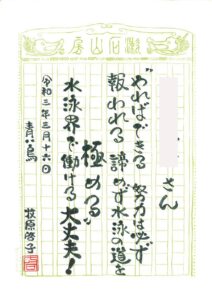 漱石山房
さん
"やればできる 努力は必ず
報われる 諦めず水泳の道を
極めつる"
水泳界で働ける 大丈夫!
令和三年三月十六日
青い鳥
牧原啓子